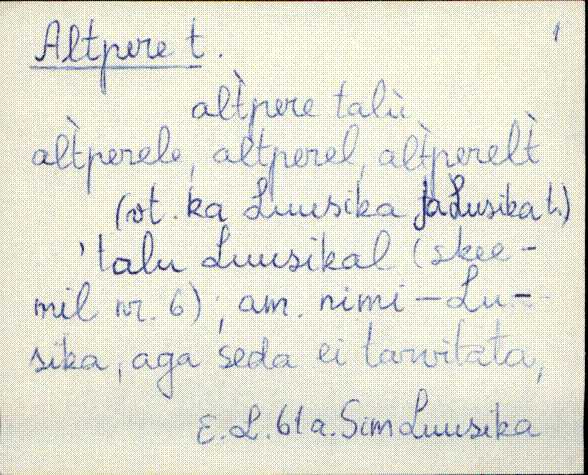 Altpere t. 1
alt̀pere talù
alt̀perele, altperel, alt̀perelt̀
(vt. ka Luusika ja Lusika t.)
'talu Luusikal (skee-
mil nr. 6); am. nimi – Lu-
sika, aga seda ei tarvitata,
E.L. 61 a. Sim Luusika